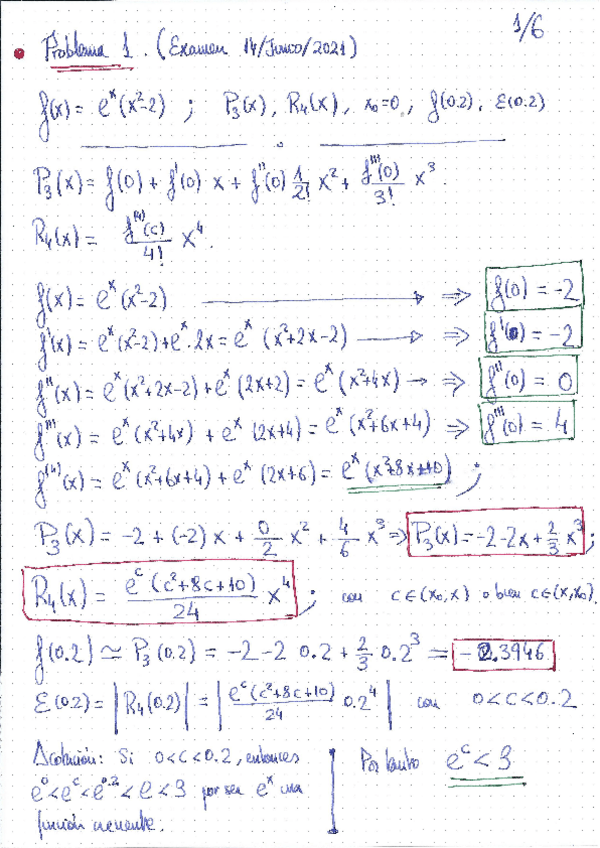 1/6
Problema 1. (Examen 14/Junio/2021)
f(x) = e^x (x²-2) ; P₃(x), R₄(x), x₀=0, f(0.2), ε(0.2)
P₃(x) = f(0) + f'(0) · x + f''(0) 1/2! x² + f'''(0)/3! x³.
R₄(x) = f⁽⁴⁾(c)/4! x⁴.
f(x) = e^x (x²-2) ⟶ ⇒ f(0) = -2
f'(x) = e^x (x²-2) + e^x · 2x = e^x (x²+2x-2) ⟶ ⇒ f'(0) = -2
f''(x) = e^x (x²+2x-2) + e^x (2x+2) = e^x (x²+4x) → ⇒ f''(0) = 0
f'''(x) = e^x (x²+4x) + e^x (2x+4) = e^x (x²+6x+4) ⇒ f'''(0) = 4
f⁽⁴⁾(x) = e^x (x²+6x+4) + e^x (2x+6) = e^x (x²+8x+10) ;
P₃(x) = -2 + (-2) x + 0/2 x² + 4/6 x³ ⇒ P₃(x) = -2-2x+2/3 x³ ;
R₄(x) = e^c (c²+8c+10)/24 x⁴ ; con c∈(x₀,x) o bien c∈(x,x₀).
f(0.2) ≃ P₃(0.2) = -2-2 0.2 + 2/3 0.2³ = -2.3946
ε(0.2) = |R₄(0.2)| = |e^c (c²+8c+10)/24 0.2⁴| con 0<c<0.2
Acotación: Si 0<c<0.2, entonces
e⁰<e^c<e^0.2<e<3 por ser e^x una
función creciente.
Por tanto e^c < 3